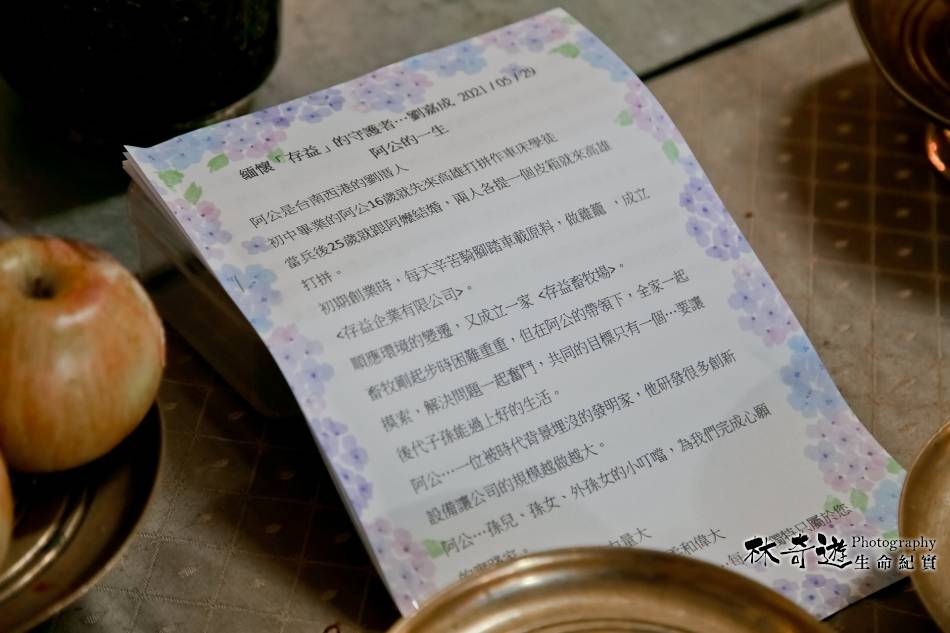 緬懷「存益」的守護者…劉嘉成 2021 / 05 / 29
阿公的一生
阿公是台南西港的劉厝人
初中畢業的阿公16歲就先來高雄打拼作車床學徒
當兵後25歲就跟阿嬤結婚，兩人各提一個皮箱就來高雄
打拼。
初期創業時，每天辛苦騎腳踏車載原料，做雞籠，成立
<存益企業有限公司>。
順應環境的變遷，又成立一家 <存益畜牧場>。
畜牧剛起步時困難重重，但在阿公的帶領下，全家一起
摸索，解決問題一起奮鬥，共同的目標只有一個…要讓
後代子孫能過上好的生活。
阿公…一位被時代背景埋沒的發明家，他研發很多創新
設備讓公司的規模越做越大。
阿公…孫兒、孫女、外孫女的小叮噹，為我們完成心願
和偉大
屬於您
林奇遊 Photography
生命紀實